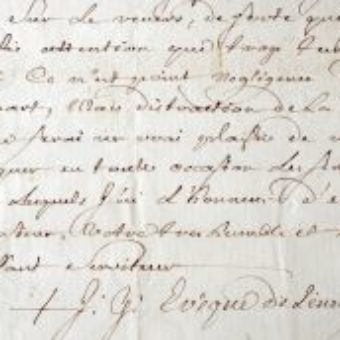 Sur le revers, de sorte que
attention que trop
Ce n'est point négligence
part, mais distraction de la
ferai un vrai plaisir de
en toute occasion les
lesquels j'ai l'honneur d'e
Votre tres humble et
serviteur
+ J. Gi Evêque de